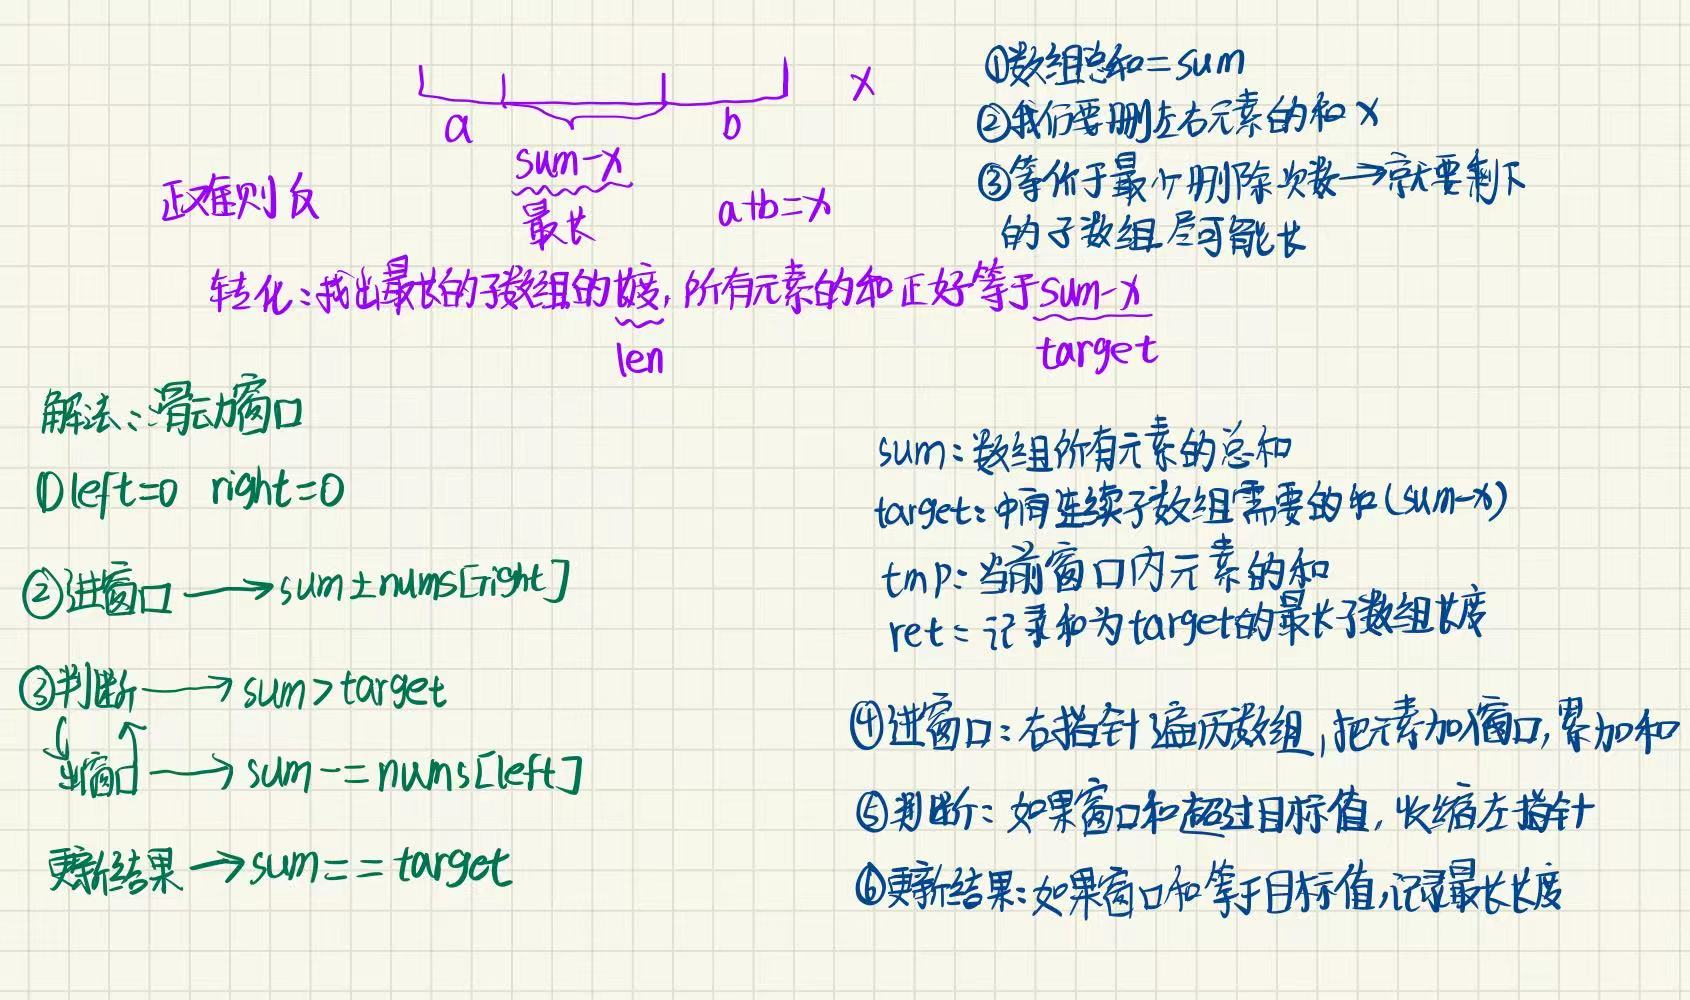 a
b
x
sum-x
最长
a+b=x
正难则反
①数组总和=sum
②我们要删左右元素的和x
③等价于最少删除次数→就要剩下
的子数组尽可能长
转化:找出最长的子数组的长度,所有元素的和正好等于sum-x
len
target
解法:滑动窗口
①left=0 right=0
②进窗口→sum±nums[right]
③判断→sum>target
出窗口→sum-=nums[left]
更新结果→sum==target
sum:数组所有元素的总和
target:中间连续子数组需要的和(sum-x)
tmp:当前窗口内元素的和
ret:记录和为target的最长子数组长度
④进窗口:右指针遍历数组,把元素加入窗口,累加和
⑤判断:如果窗口和超过目标值,收缩左指针
⑥更新结果:如果窗口和等于目标值,记录最长长度